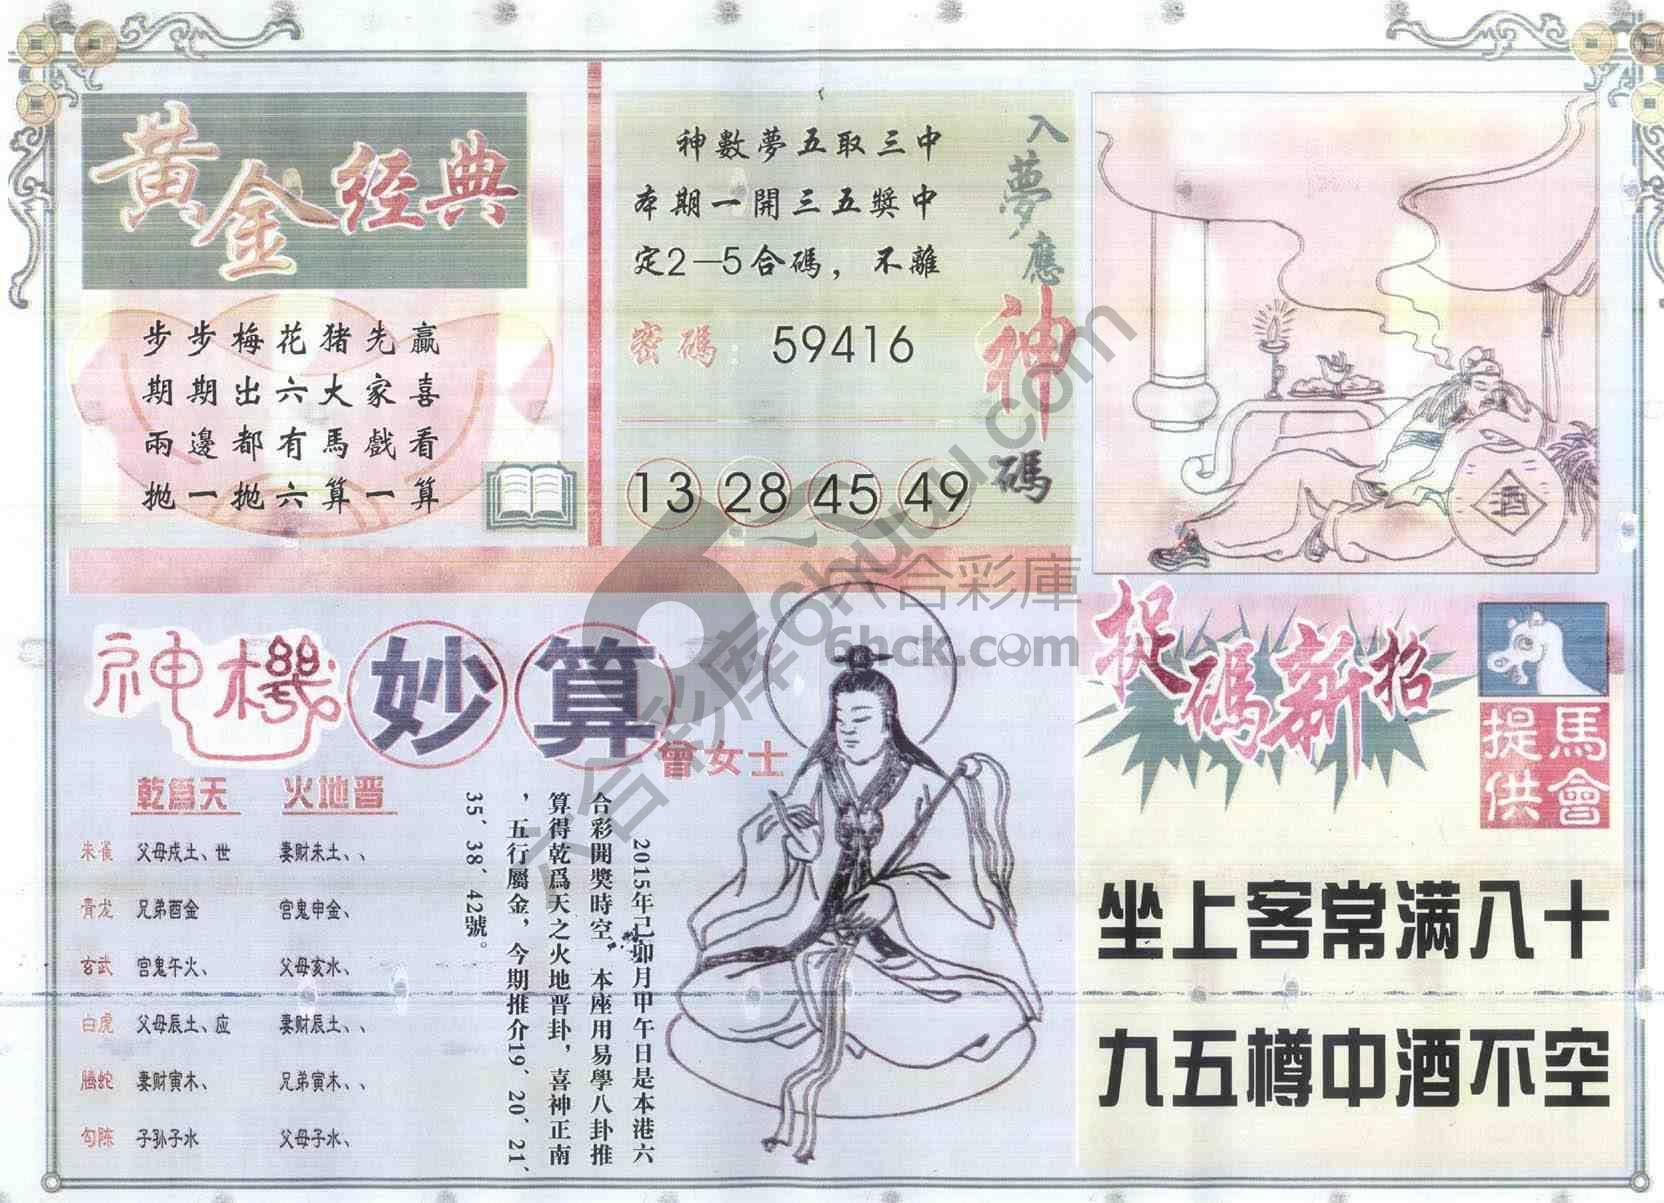 黄金经典
步步梅花猪先赢
期期出六大家喜
兩邊都有馬戲看
抛一抛六算一算
神數夢五取三中
本期一開三五獎中
定2—5合碼，不離
密碼：59416
13 28 45 49
入夢應神碼
酒
神機妙算
曾女士
乾爲天 火地晋
朱雀 父母戍土、世 妻财未土、、
青龙 兄弟酉金 官鬼申金、
玄武 宫鬼午火、 父母亥水、
白虎 父母辰土、应 妻财辰土、、
腾蛇 妻财寅木、 兄弟寅木、、
勾陈 子孙子水 父母子水、
2015年己卯月甲午日是本港六
合彩開獎時空，本座用易學八卦推
算得乾爲天之火地晋卦，喜神正南
，五行屬金，今期推介19、20、21、
35、38、42號。
捉碼新招
馬會
提供
坐上客常满八十
九五樽中酒不空
六合彩库 6huuu.com
六合彩庫
6hck.com